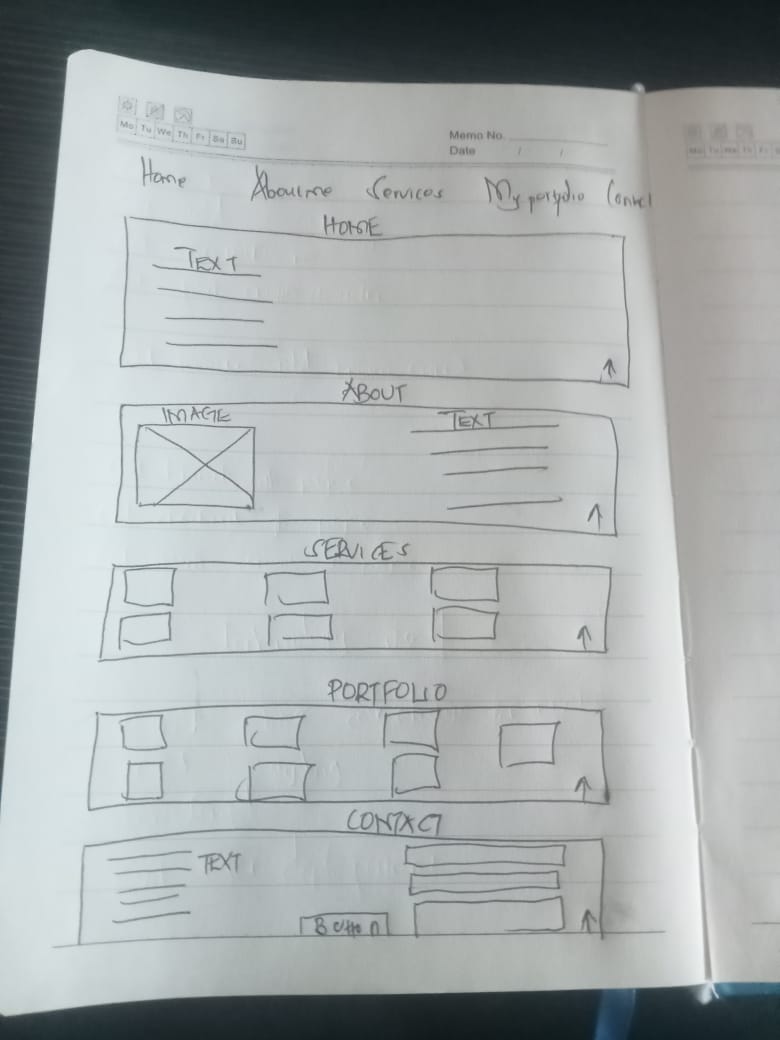 Mo Tu We Th Fr Sa Su
Memo No.
Date / /
Home About me Services My portfolio Contact
HOME
TEXT
ABOUT
IMAGE TEXT
SERVICES
PORTFOLIO
CONTACT
TEXT
Button
Mo Tu We Th Fr S